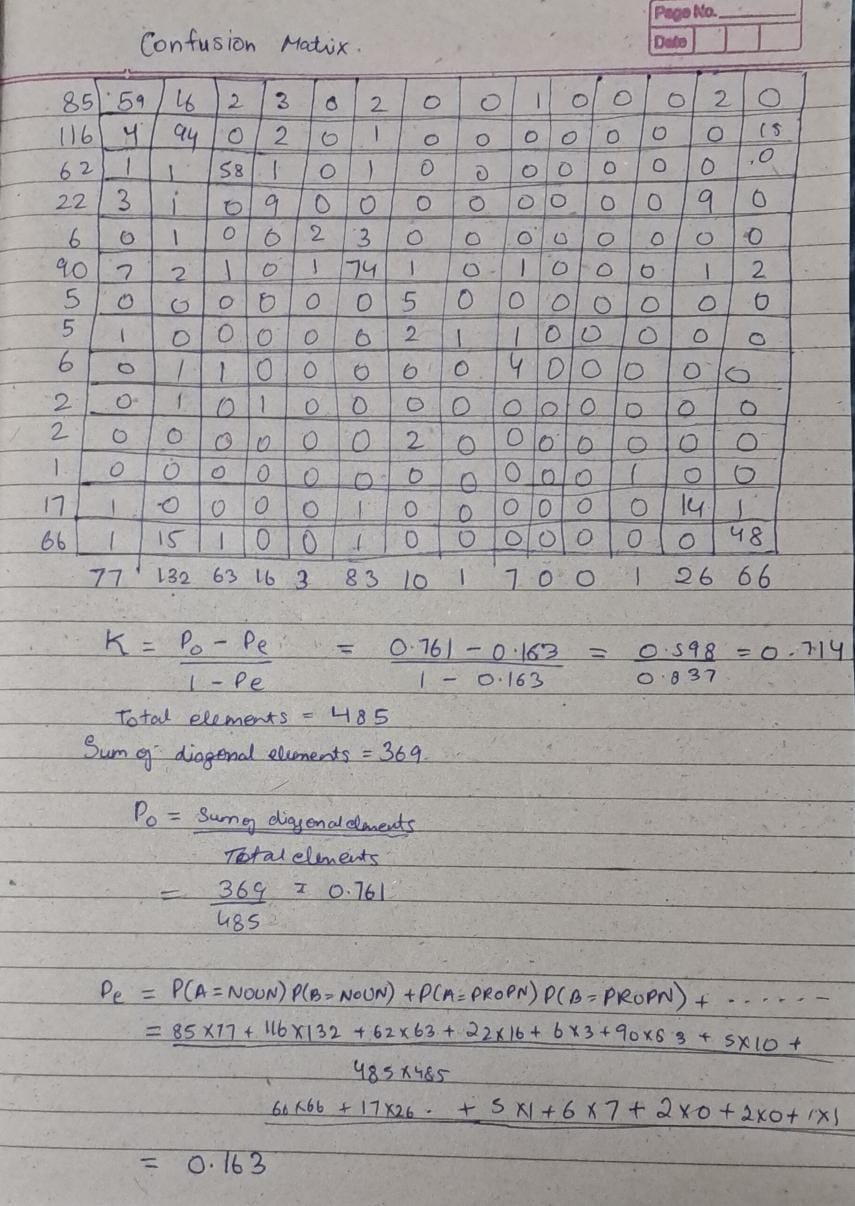 Page No.
Date
Confusion Matrix.
85 59 16 2 3 0 2 0 0 1 0 0 0 2 0
116 4 94 0 2 0 1 0 0 0 0 0 0 0 15
62 1 1 58 1 0 1 0 0 0 0 0 0 0 0
22 3 1 0 9 0 0 0 0 0 0 0 0 9 0
6 0 1 0 0 2 3 0 0 0 0 0 0 0 0
90 7 2 1 0 1 74 1 0 1 0 0 0 1 2
5 0 0 0 0 0 0 5 0 0 0 0 0 0 0
5 1 0 0 0 0 0 2 1 1 0 0 0 0 0
6 0 1 1 0 0 0 0 0 4 0 0 0 0 0
2 0 1 0 1 0 0 0 0 0 0 0 0 0 0
2 0 0 0 0 0 0 2 0 0 0 0 0 0 0
1 0 0 0 0 0 0 0 0 0 0 0 1 0 0
17 1 0 0 0 0 1 0 0 0 0 0 0 14 1
66 1 15 1 0 0 1 0 0 0 0 0 0 0 48
77 132 63 16 3 83 10 1 7 0 0 1 26 66
K = Po - Pe / 1 - Pe = 0.761 - 0.163 / 1 - 0.163 = 0.598 / 0.837 = 0.714
Total elements = 485
Sum of diagonal elements = 369
Po = Sum of diagonal elements
Total elements
= 369 / 485 = 0.761
Pe = P(A=NOUN) P(B=NOUN) + P(A=PROPN) P(B=PROPN) + ......
= 85x77 + 116x132 + 62x63 + 22x16 + 6x3 + 90x83 + 5x10 +
485x485
66x66 + 17x26 . + 5x1 + 6x7 + 2x0 + 2x0 + 1x1
= 0.163